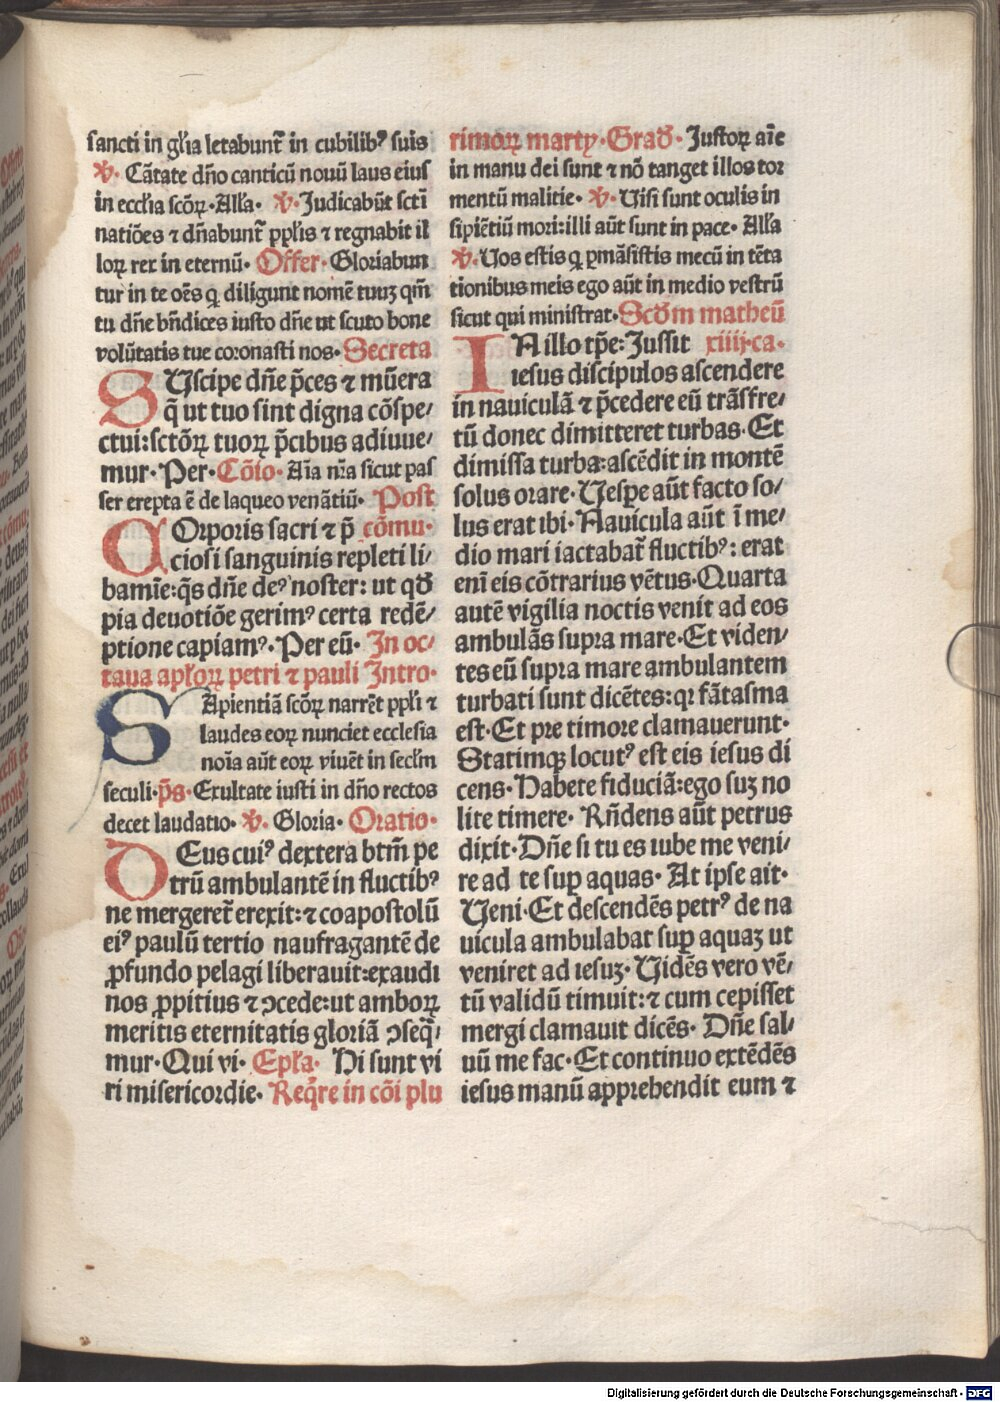 sancti in gl'ia letabunt᷑ in cubilibꝰ suis
℣· Cātate dño canticū nouū laus eius
in eccl'ia scōꝝ·All'a· ℣·Judicabūt scti
natiōes ⁊ dñabunt᷑ ppl'is ⁊ regnabit il
loꝝ rex in eternū· Offer· Gloriabun
tur in te oēs ꝗ diligunt nomē tuuꝫ qm̄
tu dñe bñdices iusto dñe ut scuto bone
volūtatis tue coronasti nos· Secreta
SUscipe dñe p̄ces ⁊ mūera
q̄ ut tuo sint digna cōspe/
ctui:sctōꝝ tuoꝝ p̄cibus adiuue/
mur· Per· Cōio· Aīa nr̄a sicut pas
ser erepta ē de laqueo venātiū· Post
COrporis sacri ⁊ p̄ cōmu·
ciosi sanguinis repleti li/
bamīe:q̄s dñe deꝰ noster: ut qđ
pia deuotiōe gerimꝰ certa redē/
ptione capiamꝰ· Per eū· In oc·
taua apl'oꝝ petri ⁊ pauli Intro·
SApientiā scōꝝ narrēt ppl'i ⁊
laudes eoꝝ nunciet ecclesia
noīa aūt eoꝝ viuēt in secl'm
seculi·p̄s· Exultate iusti in dño rectos
decet laudatio· ℣· Gloria· Oratio·
DEus cuiꝰ dextera btm̄ pe
trū ambulantē in fluctibꝰ
ne mergeret᷑ erexit:⁊ coapostolū
eiꝰ paulū tertio naufragantē de
ꝓfundo pelagi liberauit:exaudi
nos ꝓpitius ⁊ ꝯcede:ut amboꝝ
meritis eternitatis gloriā ꝯseq̄/
mur· Qui vi· Epl'a· Hi sunt vi
ri misericordie· Reqr̄e in cōi plu
rimoꝝ marty·Građ· Justoꝝ aīe
in manu dei sunt ⁊ nō tanget illos tor
mentū malitie· ℣· Uisi sunt oculis in
sipiētiū mori:illi aūt sunt in pace· All'a
℣·Uos estis ꝗ ꝑmāsistis mecū in tēta
tionibus meis ego aūt in medio vestrū
sicut qui ministrat·Scđm matheū
IN illo tp̄e: Jussit xiiij·ca·
iesus discipulos ascendere
in nauiculā ⁊ p̄cedere eū trāsfre/
tū donec dimitteret turbas·Et
dimissa turba:ascēdit in montē
solus orare· Uespe aūt facto so/
lus erat ibi· Nauicula aūt ī me/
dio mari iactabat᷑ fluctibꝰ: erat
enī eis cōtrarius vētus·Quarta
autē vigilia noctis venit ad eos
ambulās supra mare·Et viden/
tes eū supra mare ambulantem
turbati sunt dicētes:qꝛ fātasma
est·Et pre timore clamauerunt·
Statimqꝫ locutꝰ est eis iesus di
cens· Habete fiduciā:ego suꝫ no
lite timere· Rñdens aūt petrus
dixit·Dñe si tu es iube me veni/
re ad te suꝑ aquas· At ipse ait·
Ueni·Et descendēs petrꝰ de na
uicula ambulabat suꝑ aquaꝫ ut
veniret ad iesuꝫ· Uidēs vero vē/
tū validū timuit:⁊ cum cepisset
mergi clamauit dicēs· Dñe sal/
uū me fac·Et continuo extēdēs
iesus manū apprehendit eum ⁊
Digitalisierung gefördert durch die Deutsche Forschungsgemeinschaft - DFG